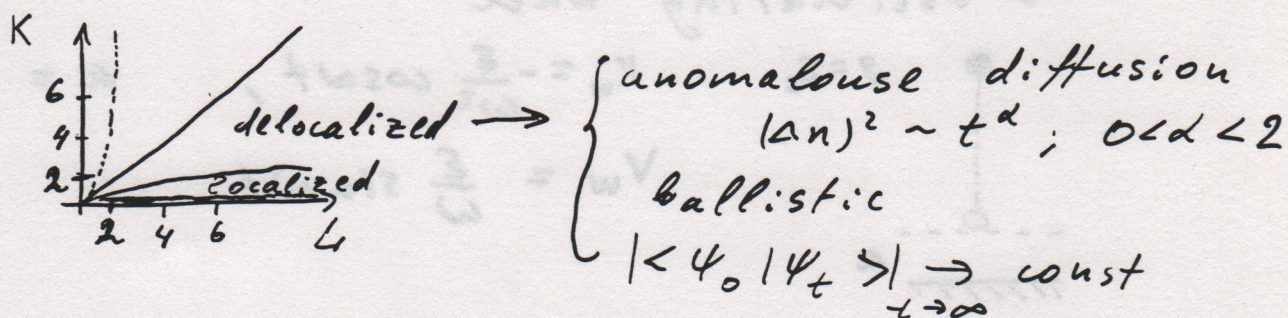 K
6
4
2
2 4 6 L
delocalized →
localized
anomalouse diffusion
(Δn)² ~ t^α ; 0<α<2
ballistic
|<Ψ₀|Ψ_t>| → const
t→∞